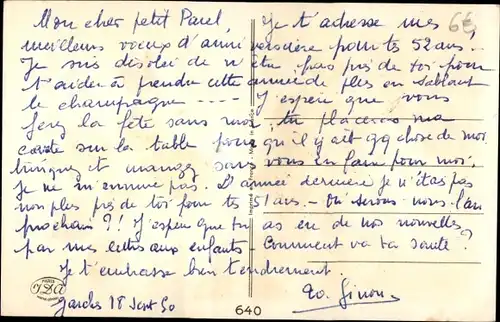 Mon cher petit Paul, Je t'adresse mes
meilleurs voeux d'anniversaire pour tes 52 ans.
Je suis désolée de n'être pas près de toi pour
t'aider à prendre cette année de plus en sablant
le champagne ---- J'espère que vous
ferez la fête sans moi, tu placeras ma
carte sur la table pour qu'il y ait qq chose de moi
buvez et mangez sans vous en faire pour moi.
Je ne m'ennuie pas. L'année dernière je n'étais pas
non plus près de toi pour tes 51 ans - Où serons-nous l'an
prochain?! J'espère que tu as eu de nos nouvelles
par mes lettres aux enfants - Comment va ta santé?
Je t'embrasse bien tendrement.
Garches 18 Sept 50
640
6€